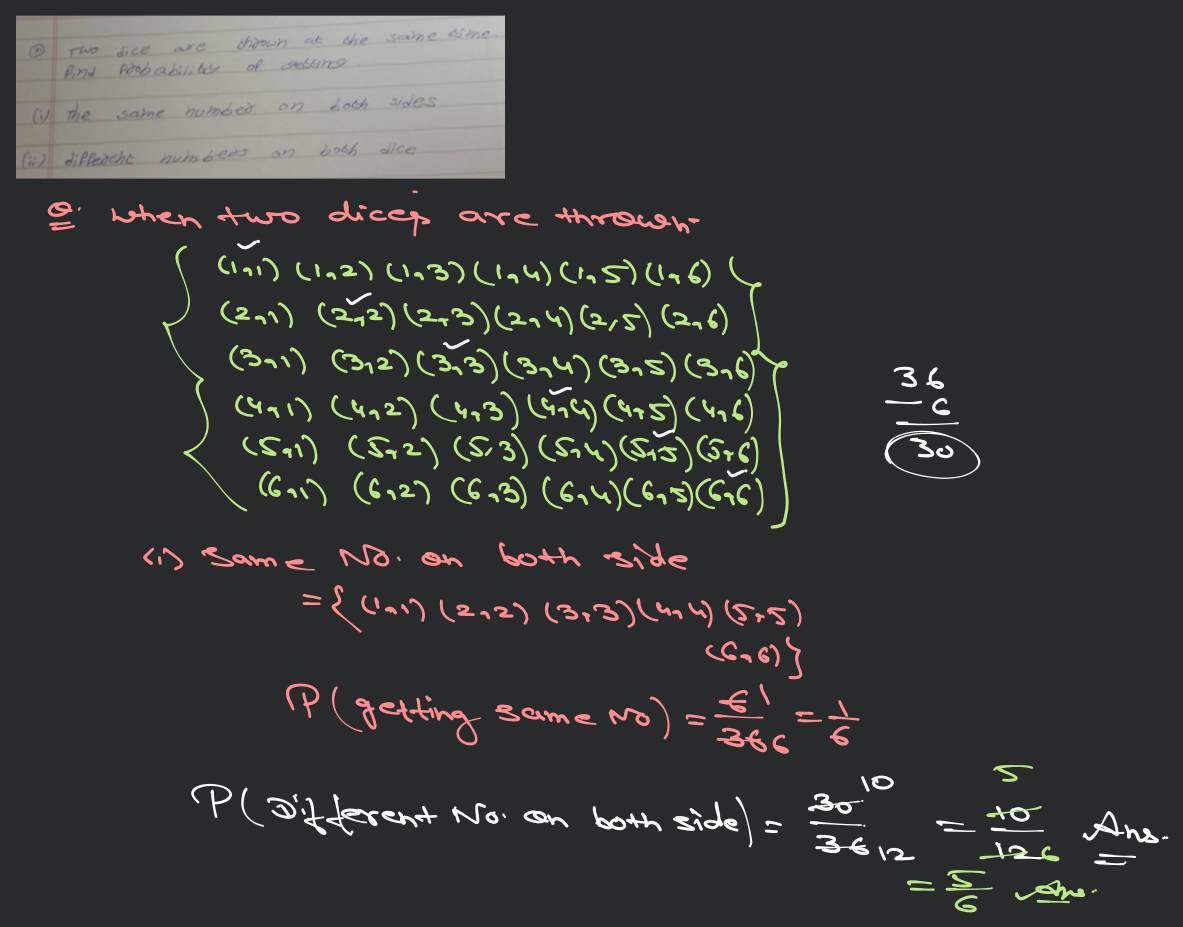 Two dice are thrown at the same time.
find Probability of getting
(i) The same number on both sides
(ii) different numbers on both dice
Q. When two dices are thrown
{ (1,1) (1,2) (1,3) (1,4) (1,5) (1,6)
(2,1) (2,2) (2,3) (2,4) (2,5) (2,6)
(3,1) (3,2) (3,3) (3,4) (3,5) (3,6)
(4,1) (4,2) (4,3) (4,4) (4,5) (4,6)
(5,1) (5,2) (5,3) (5,4) (5,5) (5,6)
(6,1) (6,2) (6,3) (6,4) (6,5) (6,6) }
36
- 6
30
(i) Same No. on both side
= { (1,1) (2,2) (3,3) (4,4) (5,5)
(6,6) }
P(getting same No) = 6 1 / 36 6 = 1/6
P(Different No. on both side) = 30 10 / 36 12 = 5 10 / 12 6 Ans.
= 5/6 Ans.